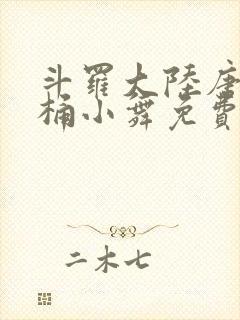 斗羅大陸唐
桶小舞免費
二木七